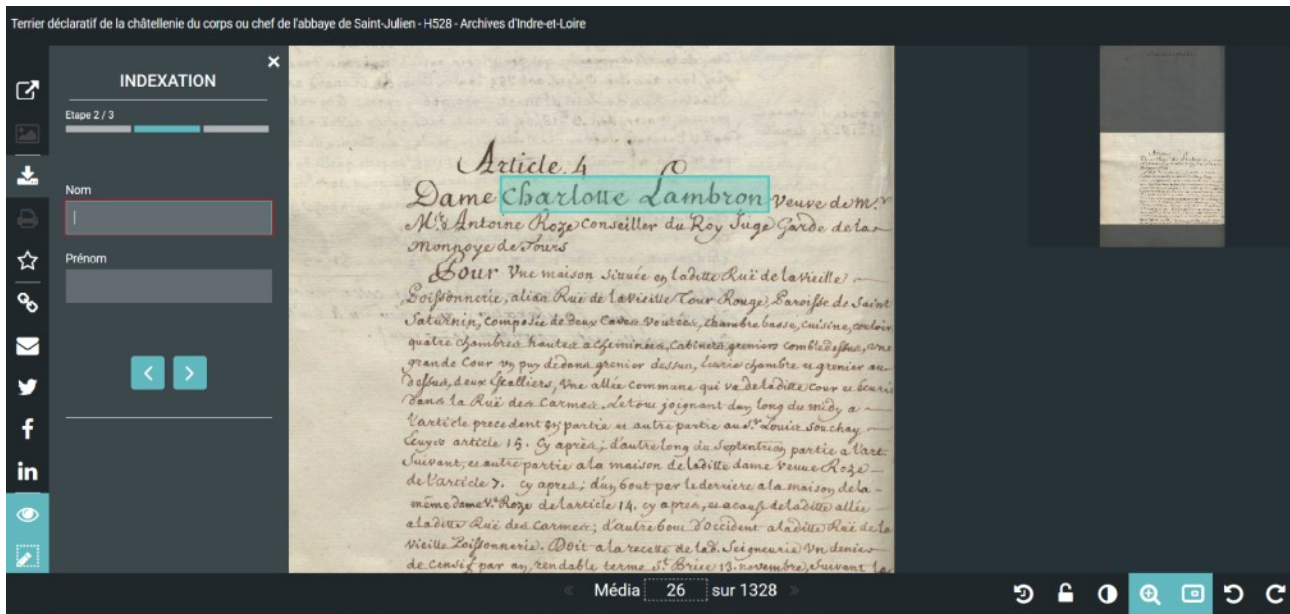 Terrier déclaratif de la châtellenie du corps ou chef de l'abbaye de Saint-Julien - H528 - Archives d'Indre-et-Loire
INDEXATION
Etape 2 / 3
Nom
Prénom
Article. 4
Dame Charlotte Lambron veuve de m.r
M.re Antoine Roze Conseiller du Roy Juge Garde de la
monnoye de Tours
Pour Vne maison situuée en laditte Ruë de la vieille
Poissonnerie, alias Ruë de la vieille Tour Rouge, Paroisse de Saint
Saturnin, Composée de deux Caves Voutées, chambre basse, Cuisine, couloir
quatre chambres hautes a cheminées, Cabinets greniers comble dessus, une
grande Cour vn puy dedans grenier dessus, Écurie chambre et grenier au
dessus, deux Escalliers, Vne allée commune qui va de laditte Cour et écurie
dans la Ruë des Carmes. Le tout joignant d'un long du midy a
l'article precedent en partie et autre partie au S.r Louis Souchay
article 15. Cy après; d'autre long du Septentrion partie a l'art.
Suivant, et autre partie a la maison de laditte dame veuve Roze
de l'article 7. cy apres; d'un bout par le derriere a la maison de la
même dame V.e Roze de l'article 14. cy après, et a cause de laditte allée
a laditte Ruë des Carmes; d'autre bout d'occident a laditte Ruë de la
Vieille Poissonnerie. Doit a la recette de lad. Seigneurie Vn denier
de Censif par an, rendable terme S.t Brice 13. novembre, Suivant la
Média 26 sur 1328